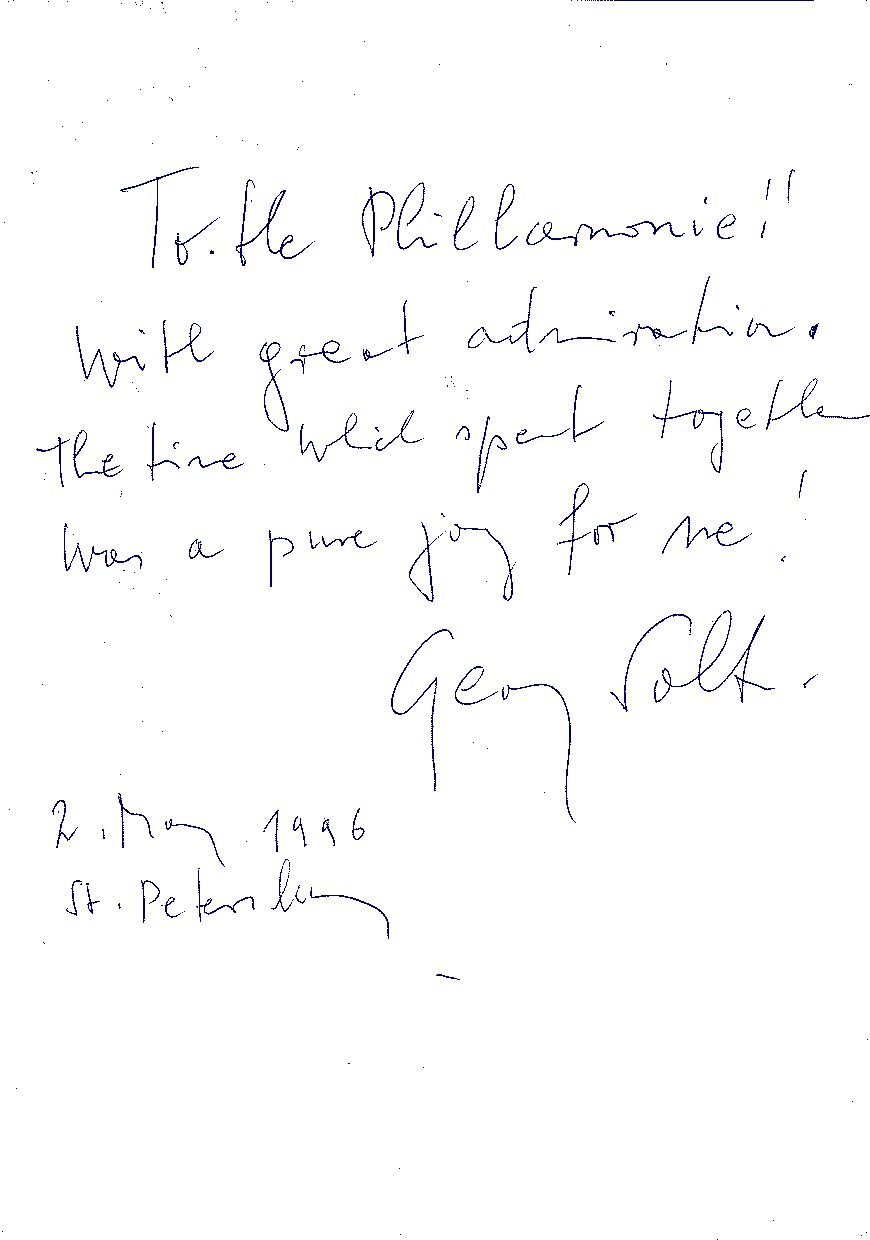 To the Philharmonie!!
With great admiration.
The time which spent together
was a pure joy for me!
Georg Solti.
2. May 1996
St. Petersburg